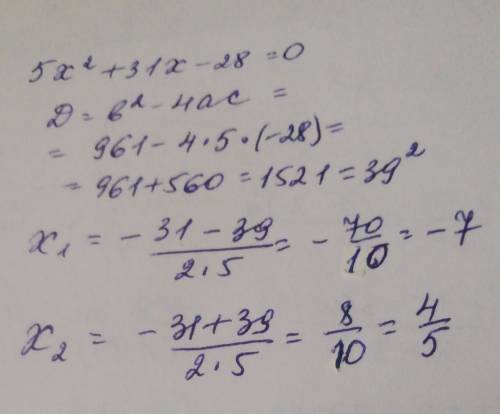 5x² + 31x - 28 = 0
D = b² - 4ac =
= 961 - 4 · 5 · (-28) =
= 961 + 560 = 1521 = 39²
x₁ = (-31 - 39)/(2 · 5) = -70/10 = -7
x₂ = (-31 + 39)/(2 · 5) = 8/10 = 4/5